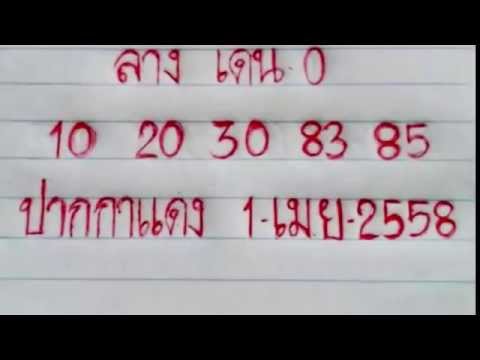 ล่าง เด่น 0
10 20 30 83 85
ปากกาแดง 1-เม.ย-2558